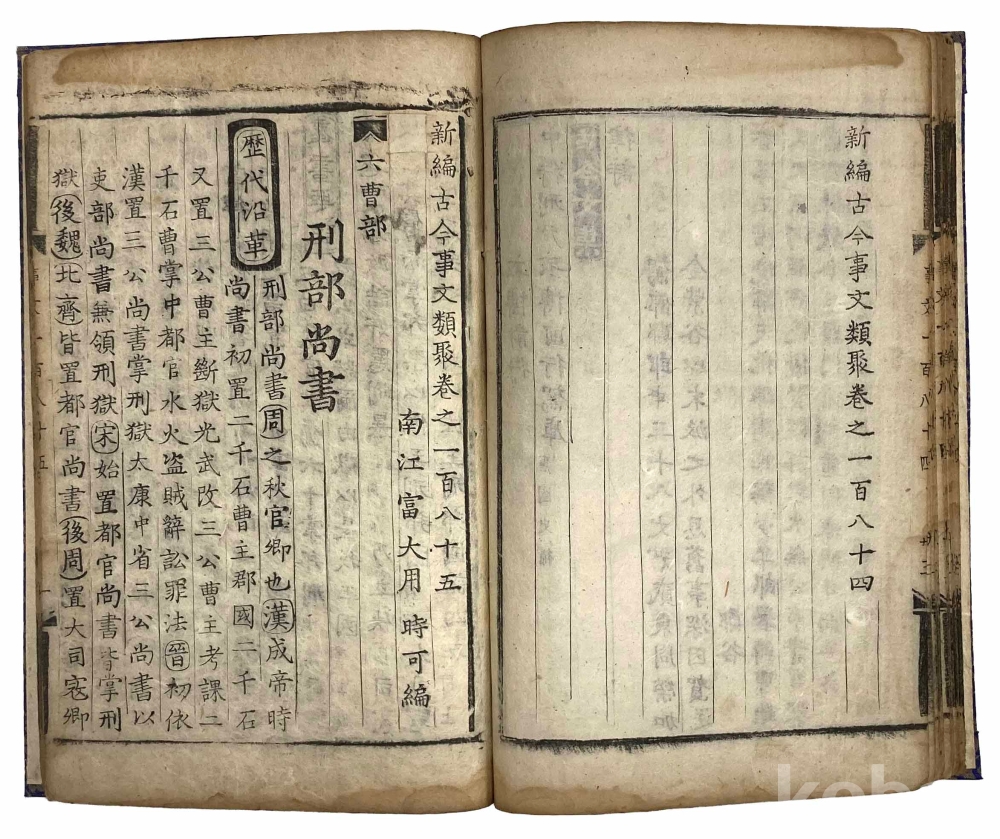 新編古今事文類聚卷之一百八十四
新編古今事文類聚卷之一百八十五
南江富大用 時可編
六曹部
刑部尚書
歷代沿革
刑部尚書周之秋官卿也漢成帝時
尚書初置二千石曹主郡國二千石
又置三公曹主斷獄光武改三公曹主考課二
千石曹掌中都官水火盜賊辭訟罪法晉初依
漢置三公尚書掌刑獄太康中省三公尚書以
吏部尚書兼領刑獄宋始置都官尚書皆掌刑
獄後魏北齊皆置都官尚書後周置大司寇卿